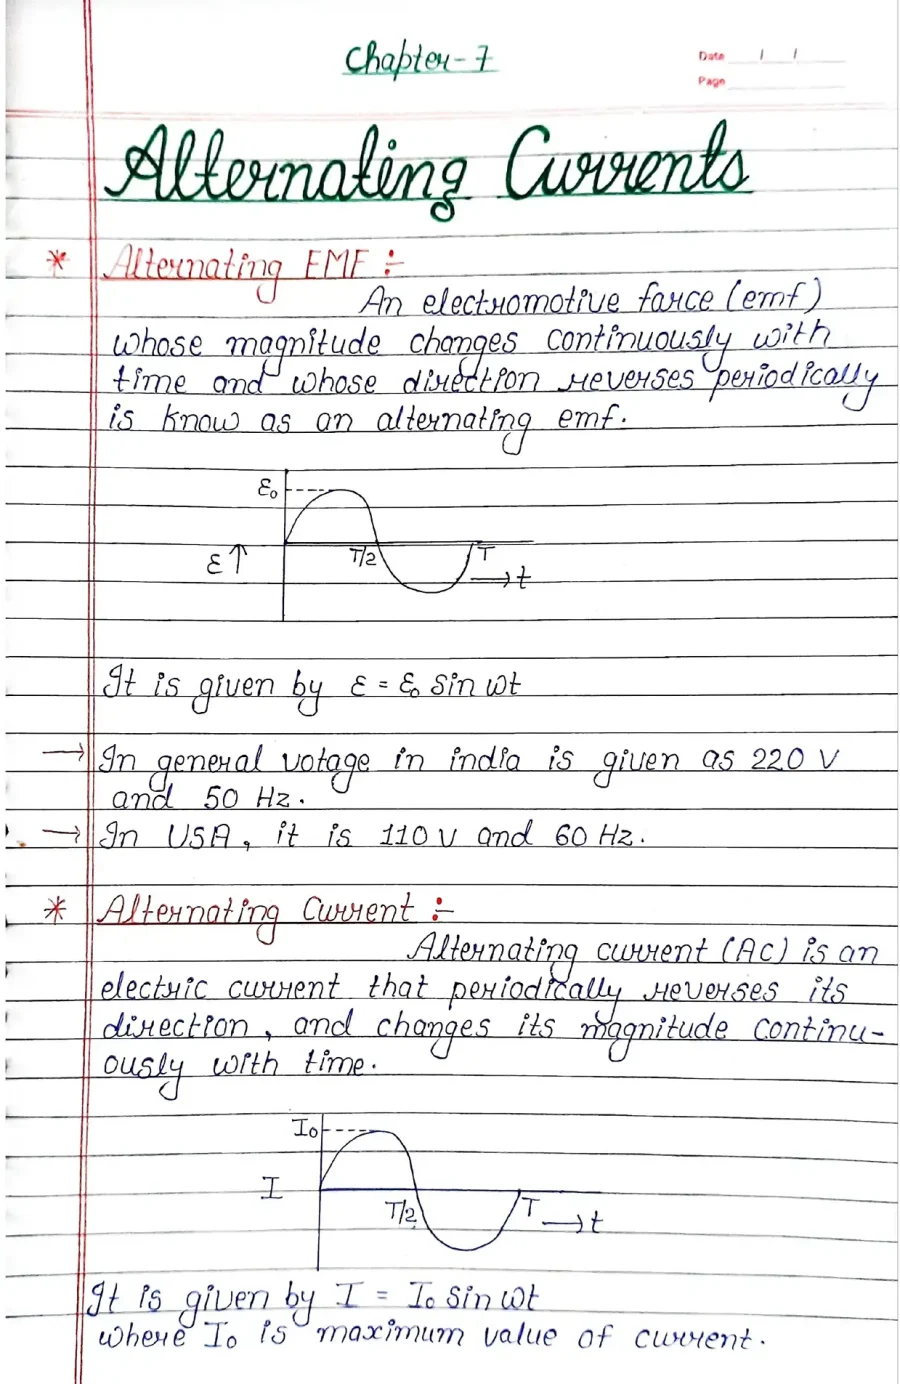 Chapter-7
Date / /
Page
Alternating Currents
* Alternating EMF :-
An electromotive force (emf)
whose magnitude changes continuously with
time and whose direction reverses periodically
is know as an alternating emf.
ε₀
ε↑ T/2 T
→t
It is given by ε = ε₀ sin ωt
→ In general votage in india is given as 220 V
and 50 Hz.
→ In USA, it is 110 V and 60 Hz.
* Alternating Current :-
Alternating current (AC) is an
electric current that periodically reverses its
direction, and changes its magnitude continu-
ously with time.
I₀
I
T/2 T →t
It is given by I = I₀ sin ωt
where I₀ is maximum value of current.